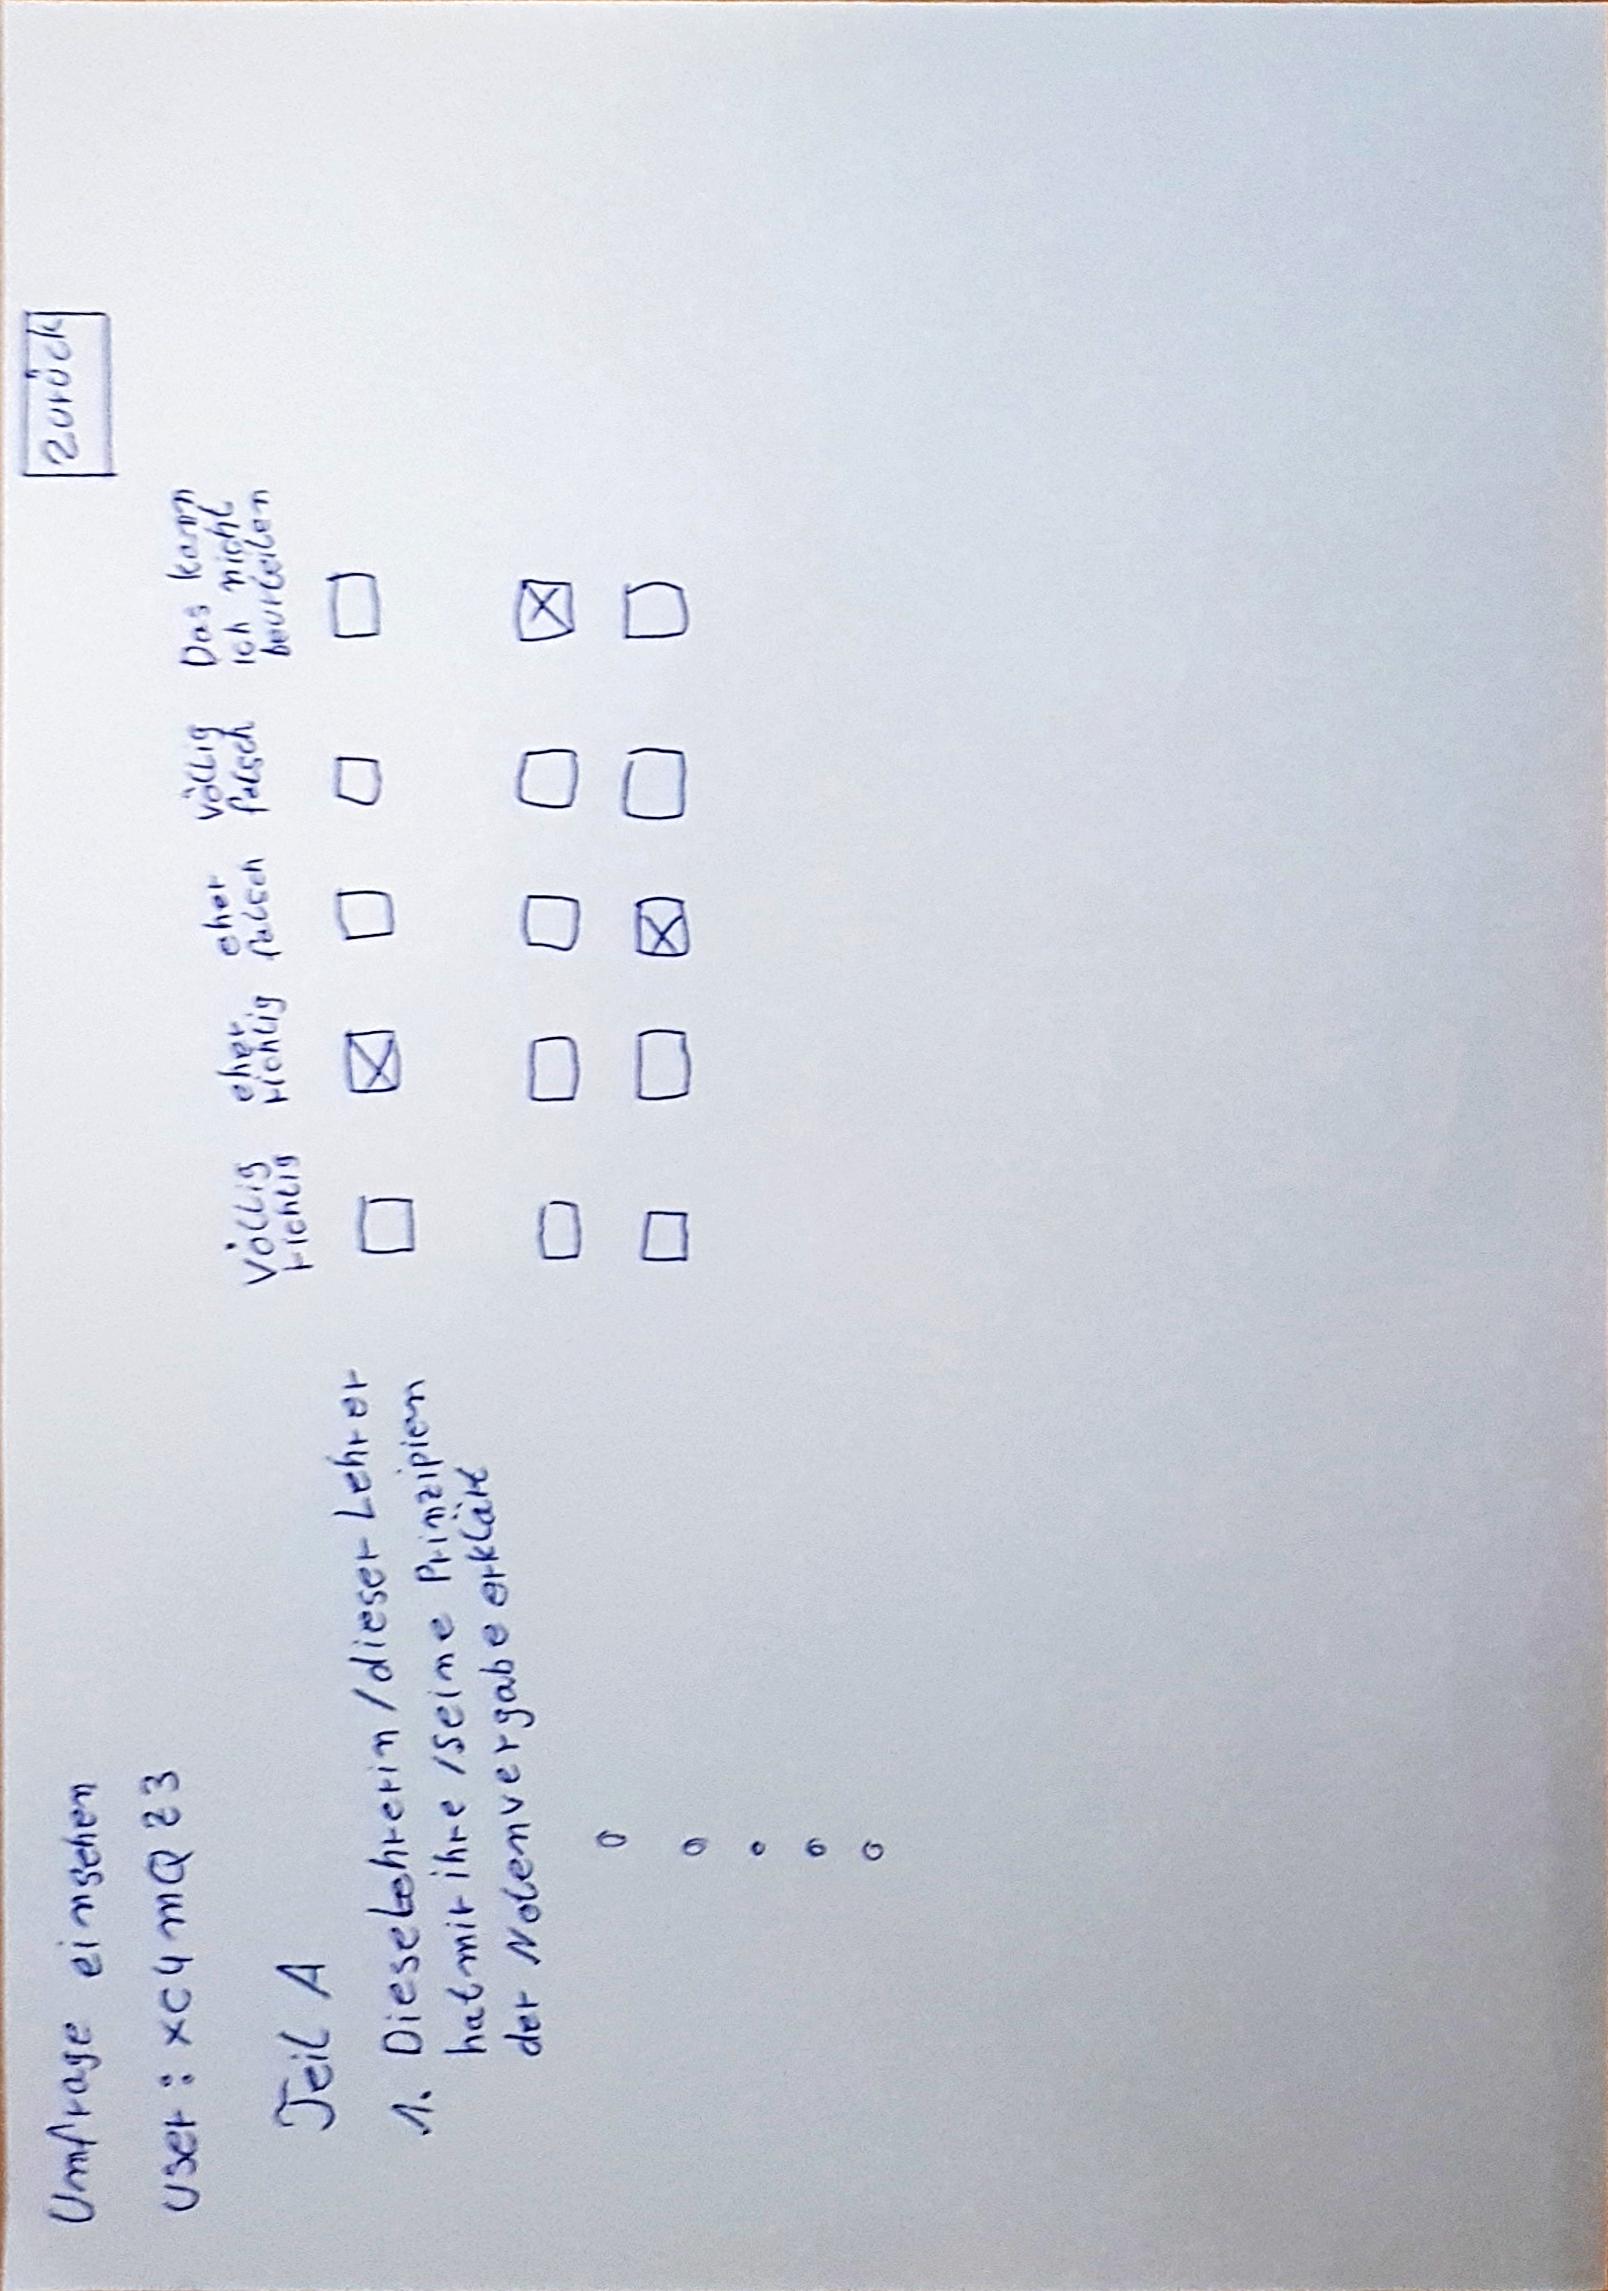 Umfrage einsehen
Zurück
User: xc4mQZ3
Völlig richtig
eher richtig
eher falsch
Völlig falsch
Das kann ich nicht beurteilen
Teil A
1. Diese Lehrerin / dieser Lehrer
hat mir ihre / seine Prinzipien
der Notenvergabe erklärt